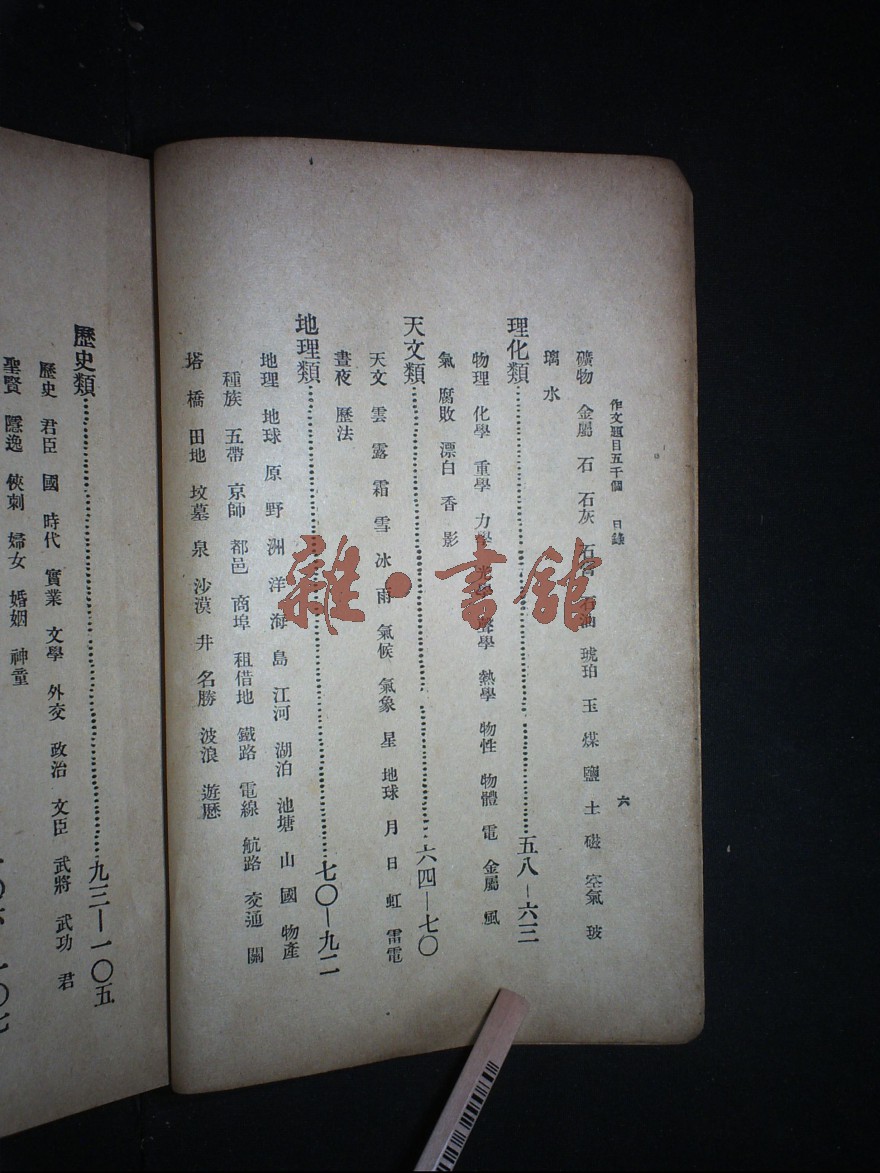 作文題目五千個 日錄 六
礦物 金屬 石 石灰 石膏 石油 琥珀 玉 煤 鹽 土 磁 空氣 玻
璃 水
理化類……五八—六三
物理 化學 重學 力學 光學 聲學 熱學 物性 物體 電 金屬 風
氣 腐敗 漂白 香 影
天文類……六四—七〇
天文 雲 露 霜 雪 冰 雨 氣候 氣象 星 地球 月 日 虹 雷電
晝夜 歷法
地理類……七〇—九二
地理 地球 原 野 洲 洋 海 島 江河 湖泊 池塘 山 國 物產
種族 五帶 京師 都邑 商埠 租借地 鐵路 電線 航路 交通 關
塔 橋 田地 坟墓 泉 沙漠 井 名勝 波浪 遊歷
歷史類……九三—一〇五
歷史 君臣 國 時代 實業 文學 外交 政治 文臣 武將 武功 君
聖賢 隱逸 俠刺 婦女 婚姻 神童
雜·書館